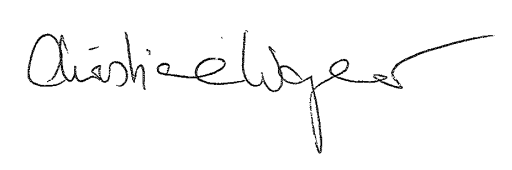 Christiane Wagner